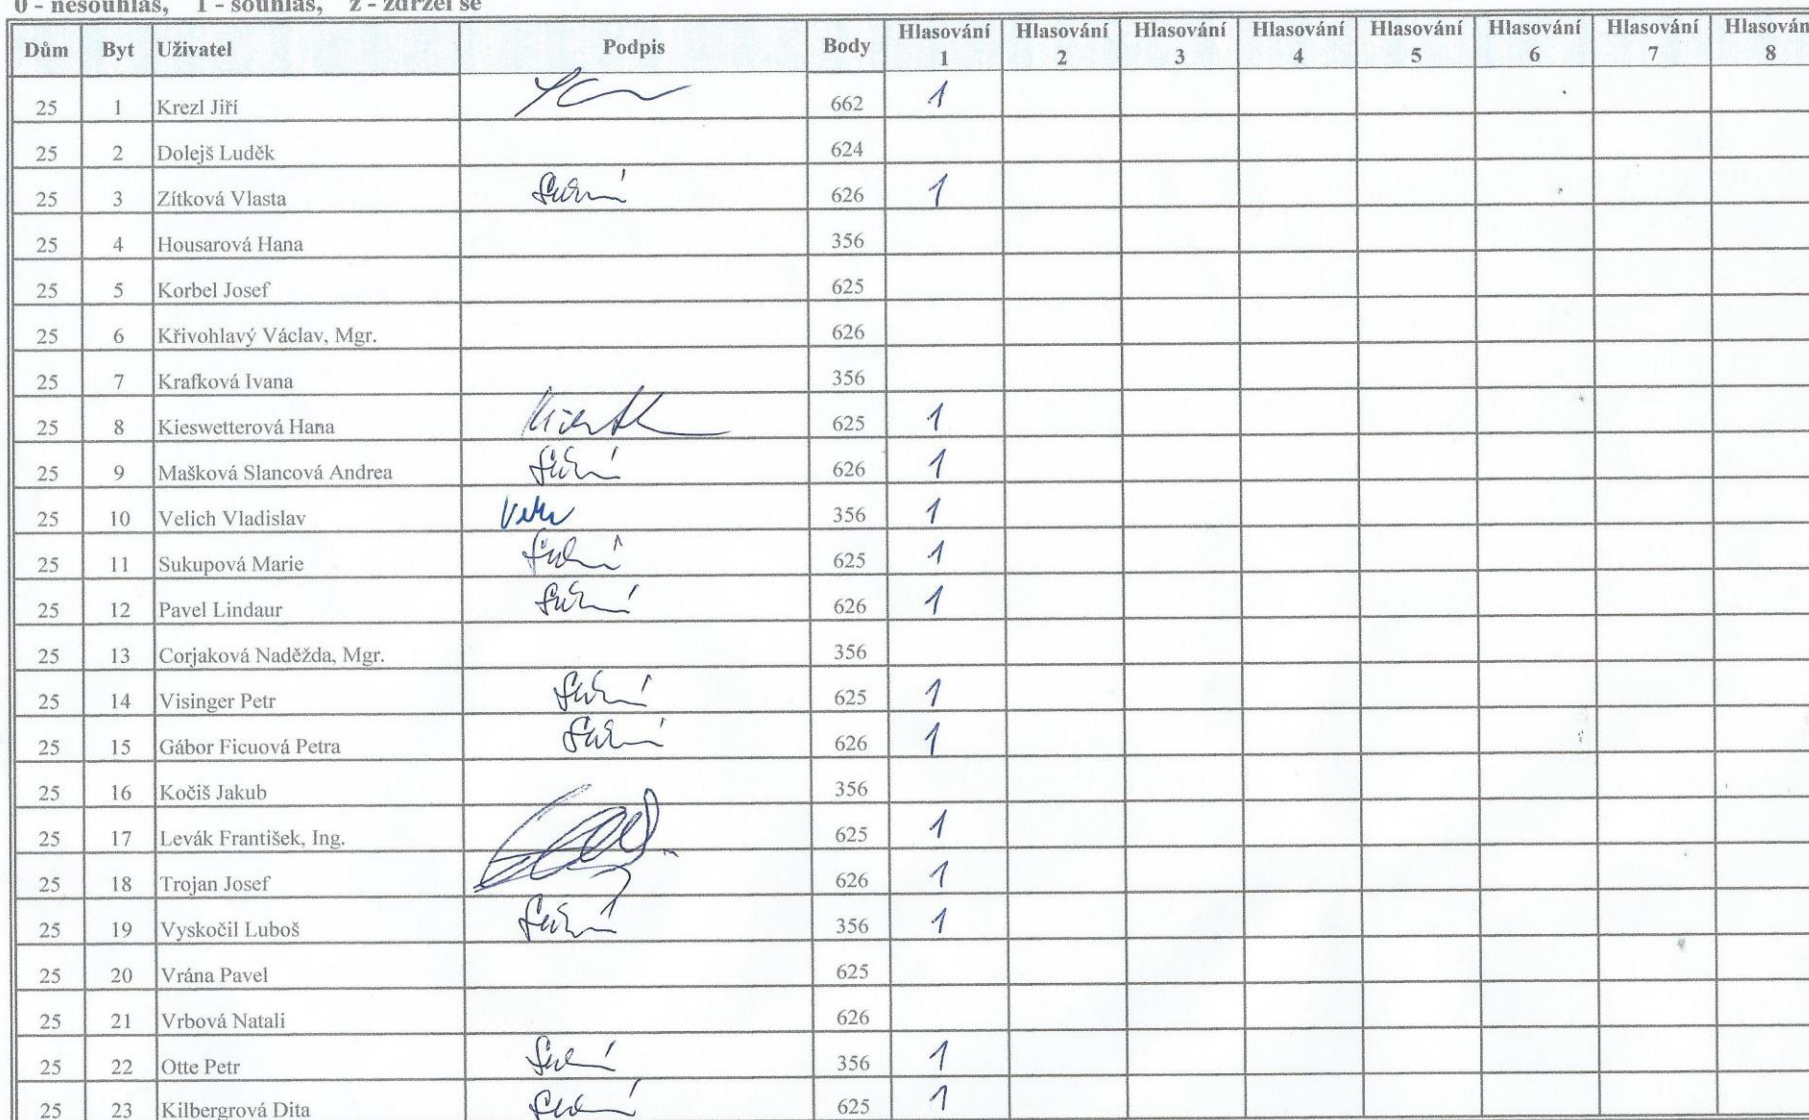 0 - nesouhlas, 1 - souhlas, z - zdržel se
Dům Byt Uživatel Podpis Body Hlasování 1 Hlasování 2 Hlasování 3 Hlasování 4 Hlasování 5 Hlasování 6 Hlasování 7 Hlasován 8
25 1 Krezl Jiří 662 1
25 2 Dolejš Luděk 624
25 3 Zítková Vlasta 626 1
25 4 Housarová Hana 356
25 5 Korbel Josef 625
25 6 Křivohlavý Václav, Mgr. 626
25 7 Krafková Ivana 356
25 8 Kieswetterová Hana 625 1
25 9 Mašková Slancová Andrea 626 1
25 10 Velich Vladislav 356 1
25 11 Sukupová Marie 625 1
25 12 Pavel Lindaur 626 1
25 13 Corjaková Naděžda, Mgr. 356
25 14 Visinger Petr 625 1
25 15 Gábor Ficuová Petra 626 1
25 16 Kočiš Jakub 356
25 17 Levák František, Ing. 625 1
25 18 Trojan Josef 626 1
25 19 Vyskočil Luboš 356 1
25 20 Vrána Pavel 625
25 21 Vrbová Natali 626
25 22 Otte Petr 356 1
25 23 Kilbergrová Dita 625 1